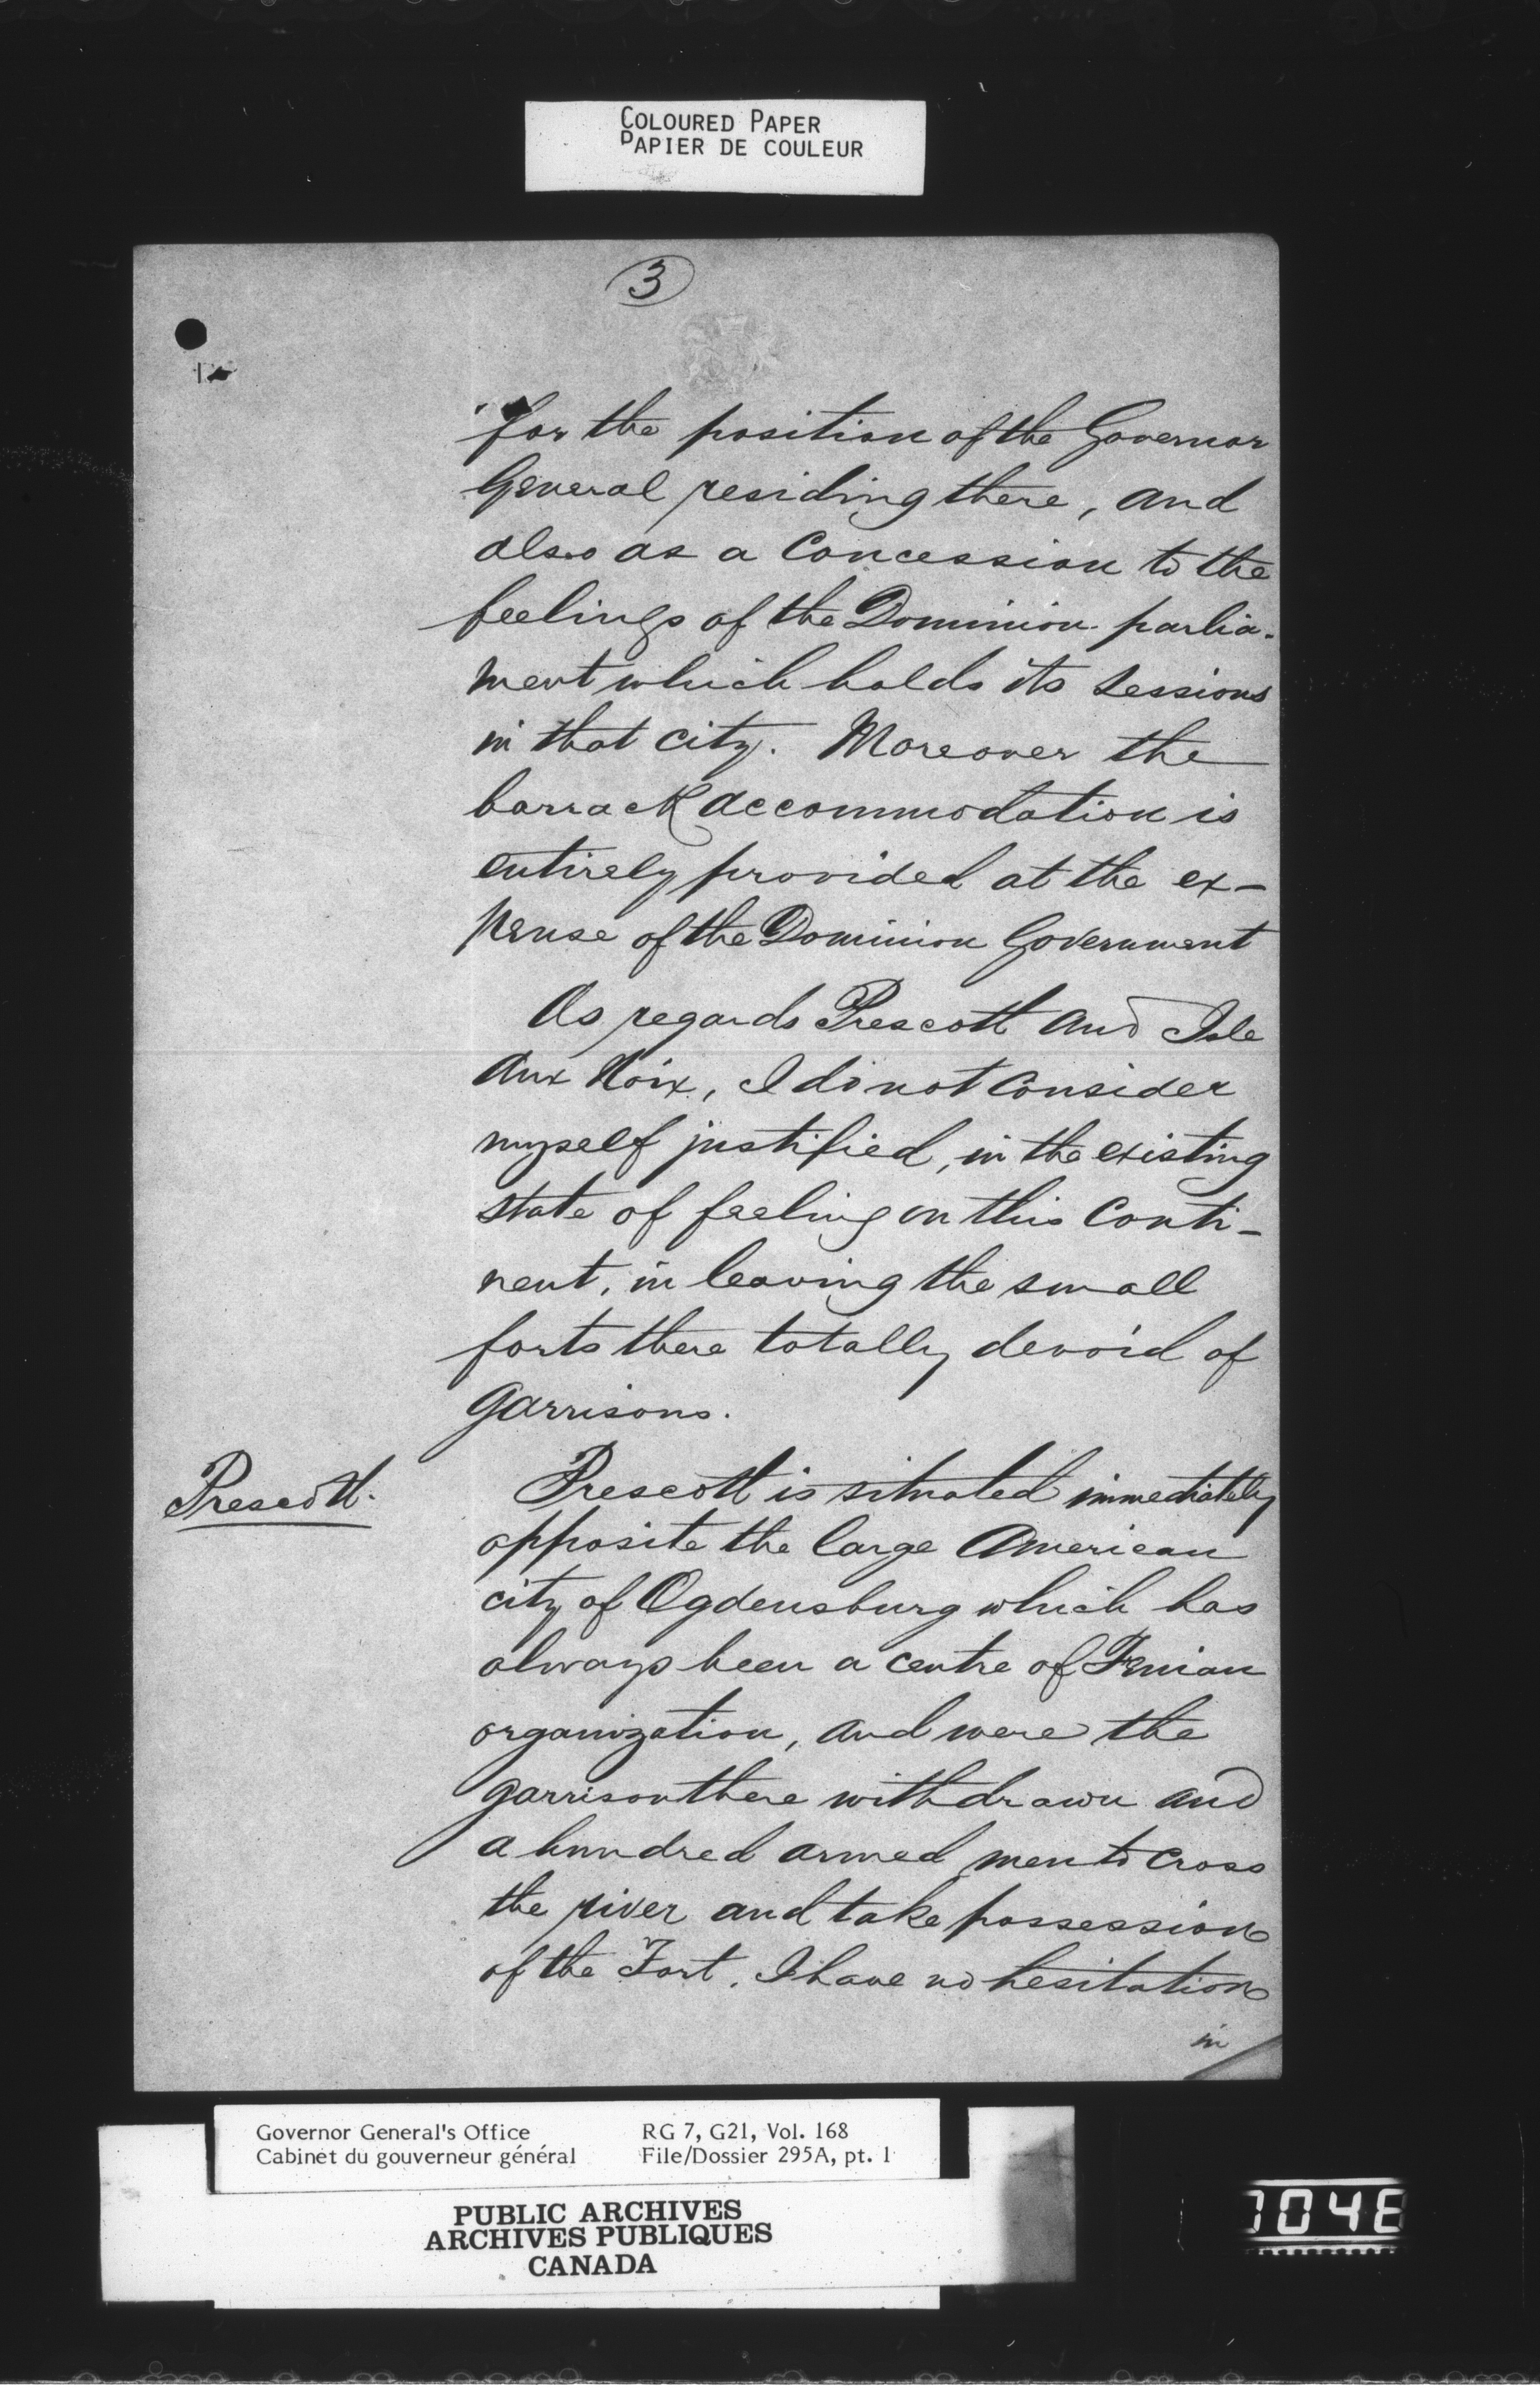 COLOURED PAPER
PAPIER DE COULEUR
3
for the position of the Governor
General residing there, and
also as a Concession to the
feelings of the Dominion parlia-
ment which holds its sessions
in that city. Moreover the
barrack accommodation is
entirely provided at the ex-
pense of the Dominion Government
As regards Prescott and Isle
aux Noix, I do not consider
myself justified, in the existing
state of feeling on this Conti-
nent, in leaving the small
forts there totally devoid of
garrisons.
Prescott.
Prescott is situated immediately
opposite the large American
city of Ogdensburg which has
always been a centre of Fenian
organization, and were the
garrison there withdrawn and
a hundred armed men to cross
the river and take possession
of the Fort. I have no hesitation
in
Governor General's Office
Cabinet du gouverneur général
RG 7, G21, Vol. 168
File/Dossier 295A, pt. 1
PUBLIC ARCHIVES
ARCHIVES PUBLIQUES
CANADA